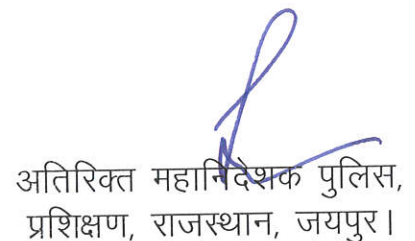 अतिरिक्त महानिदेशक पुलिस,
प्रशिक्षण, राजस्थान, जयपुर।